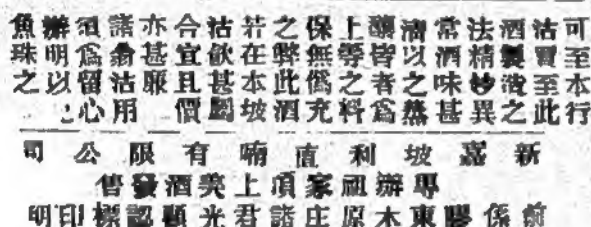 可至本行
沽買至此
酒製漬之
法精妙異
常酒味甚
以之蒸
釀皆者爲
上等之料
保無僞充
之弊此酒
若在本坡
沽飲甚屬
合宜且價
亦甚
諸翁沽用
須爲留心
辦明以
魚珠之
新嘉坡利直喃有限公司
專辦祖家頂上美酒發售
前係膠東木原庄諸君光顧認標印明